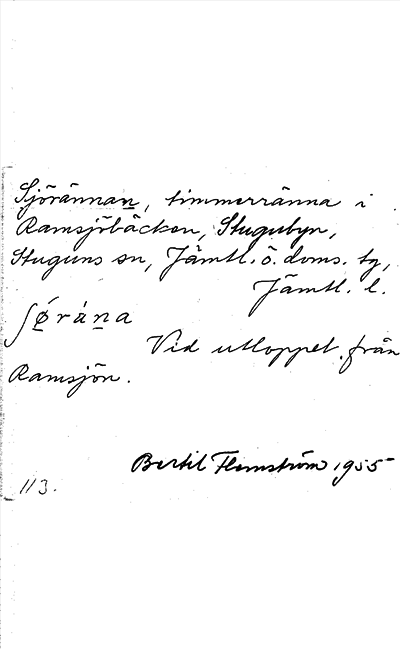 Sjörännan, timmerränna i
Ramsjöbäcken, Stugubyn,
Stuguns sn, Jämtl. ö. doms. tg,
Jämtl. l.
ʃǿ̱ràṉa
Vid utloppet från
Ramsjön.
Bertil Flemström 1955
113.